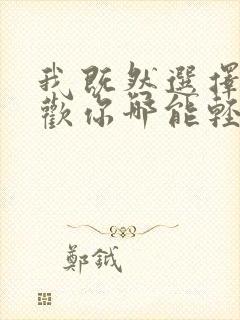 我既然選擇
歡你哪能輕
鄭鉞